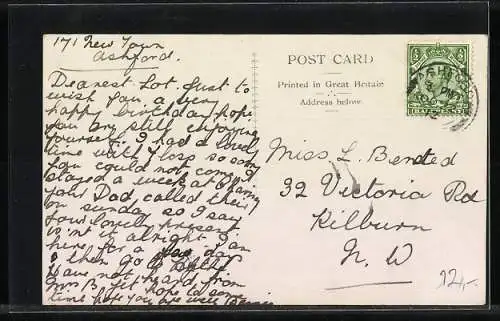 171 New Town
Ashford.
Dearest Lot. Just to
wish you a very
happy birthday, hope
you are still enjoying
yourself. I had a lovely
time with Floss so sorry
you could not come, I
stayed a week at
your Dad called their
on sunday so I say
your lovell present
is'nt it alright. I am
here for a day
& then go to
have not heard from
Mrs B yet hope to some
time hope you are well
POST CARD
Printed in Great Britain
Address below.
Miss L. Bented
32 Victoria Rd
Kilburn
N. W
12,-